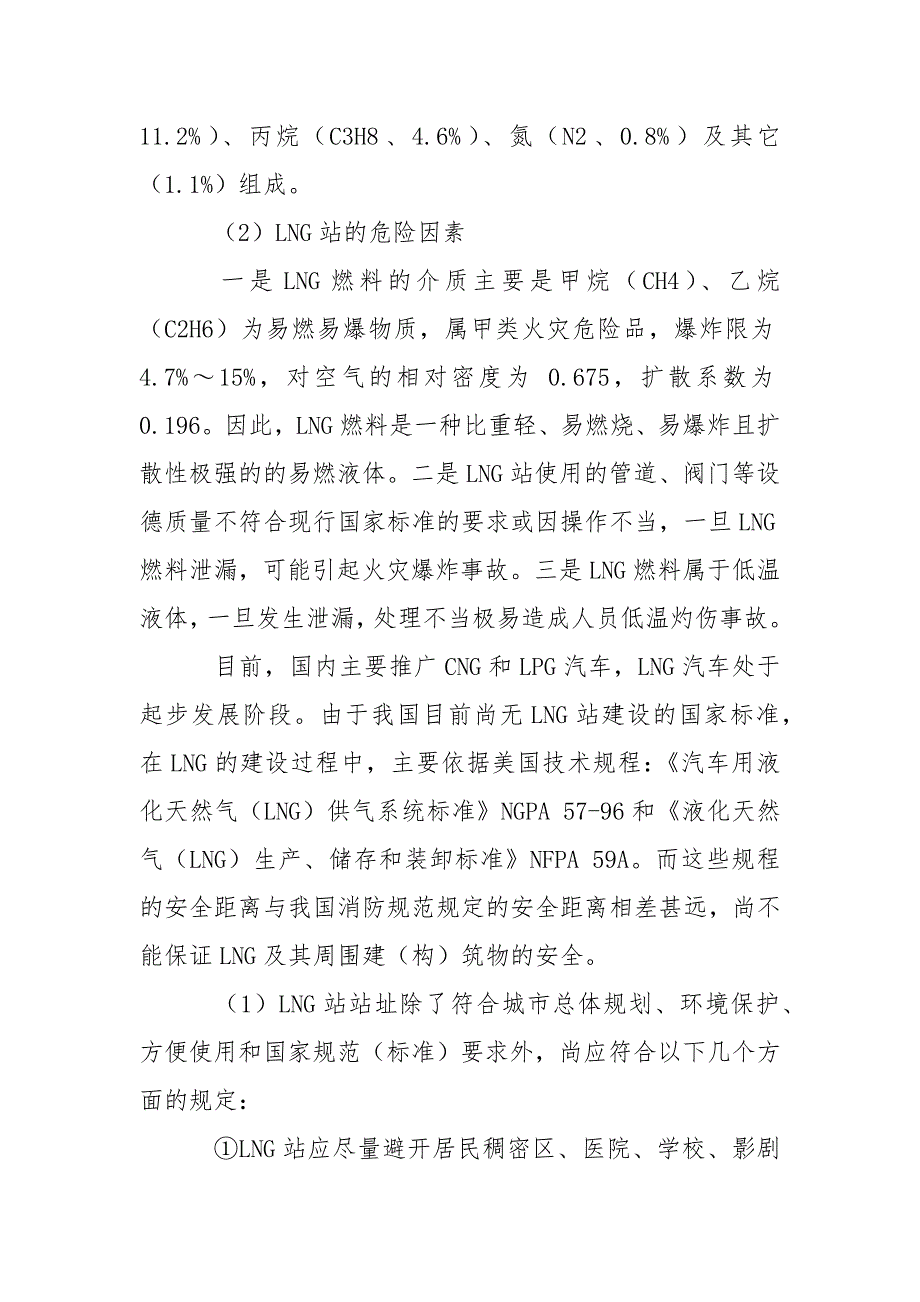 11.2%）、丙烷（C3H8、4.6%）、氮（N2、0.8%）及其它
（1.1%）组成。
（2）LNG 站的危险因素
一是 LNG 燃料的介质主要是甲烷（CH4）、乙烷
（C2H6）为易燃易爆物质，属甲类火灾危险品，爆炸限为
4.7%～15%，对空气的相对密度为 0.675，扩散系数为
0.196。因此，LNG 燃料是一种比重轻、易燃烧、易爆炸且扩
散性极强的的易燃液体。二是 LNG 站使用的管道、阀门等设
德质量不符合现行国家标准的要求或因操作不当，一旦 LNG
燃料泄漏，可能引起火灾爆炸事故。三是 LNG 燃料属于低温
液体，一旦发生泄漏，处理不当极易造成人员低温灼伤事故。
目前，国内主要推广 CNG 和 LPG 汽车，LNG 汽车处于
起步发展阶段。由于我国目前尚无 LNG 站建设的国家标准，
在 LNG 的建设过程中，主要依据美国技术规程：《汽车用液
化天然气（LNG）供气系统标准》NGPA 57-96 和《液化天然
气（LNG）生产、储存和装卸标准》NFPA 59A。而这些规程
的安全距离与我国消防规范规定的安全距离相差甚远，尚不
能保证 LNG 及其周围建（构）筑物的安全。
（1）LNG 站站址除了符合城市总体规划、环境保护、
方便使用和国家规范（标准）要求外，尚应符合以下几个方
面的规定：
①LNG 站应尽量避开居民稠密区、医院、学校、影剧